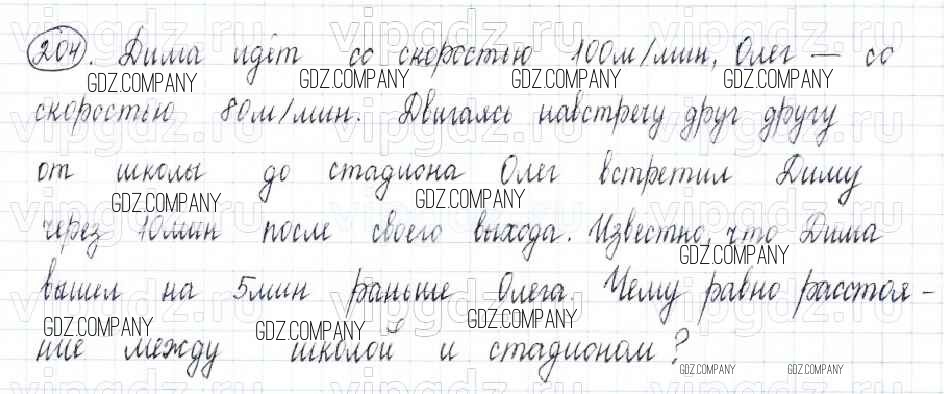 204. Дима идёт со скоростью 100м/мин, Олег — со
GDZ.COMPANY GDZ.COMPANY GDZ.COMPANY
скоростью 80м/мин. Двигаясь навстречу друг другу
от школы до стадиона Олег встретил Диму
GDZ.COMPANY GDZ.COMPANY
через 10мин после своего выхода. Известно, что Дима
GDZ.COMPANY
вышел на 5мин раньше Олега. Чему равно расстоя-
GDZ.COMPANY GDZ.COMPANY GDZ.COMPANY
ние между школой и стадионом?
GDZ.COMPANY GDZ.COMPANY